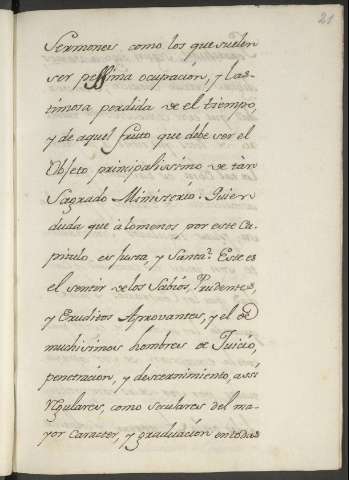 21
Sermones como los que suelen
ser pessima ocupacion, y las-
timosa perdida de el tiempo,
y de aquel fruto que debe ser el
Objeto principalissimo de tan
Sagrado Ministerio. Quien
duda que à lo menos por este Ca-
pitulo es Justa, y Santa? Este es
el sentir de los Sabios, Prudentes,
y Eruditos Aprovantes, y el de
muchisimos hombres de Juicio,
penetracion, y descernimiento, assi
regulares, como seculares del ma-
yor caracter, y graduacion en todas